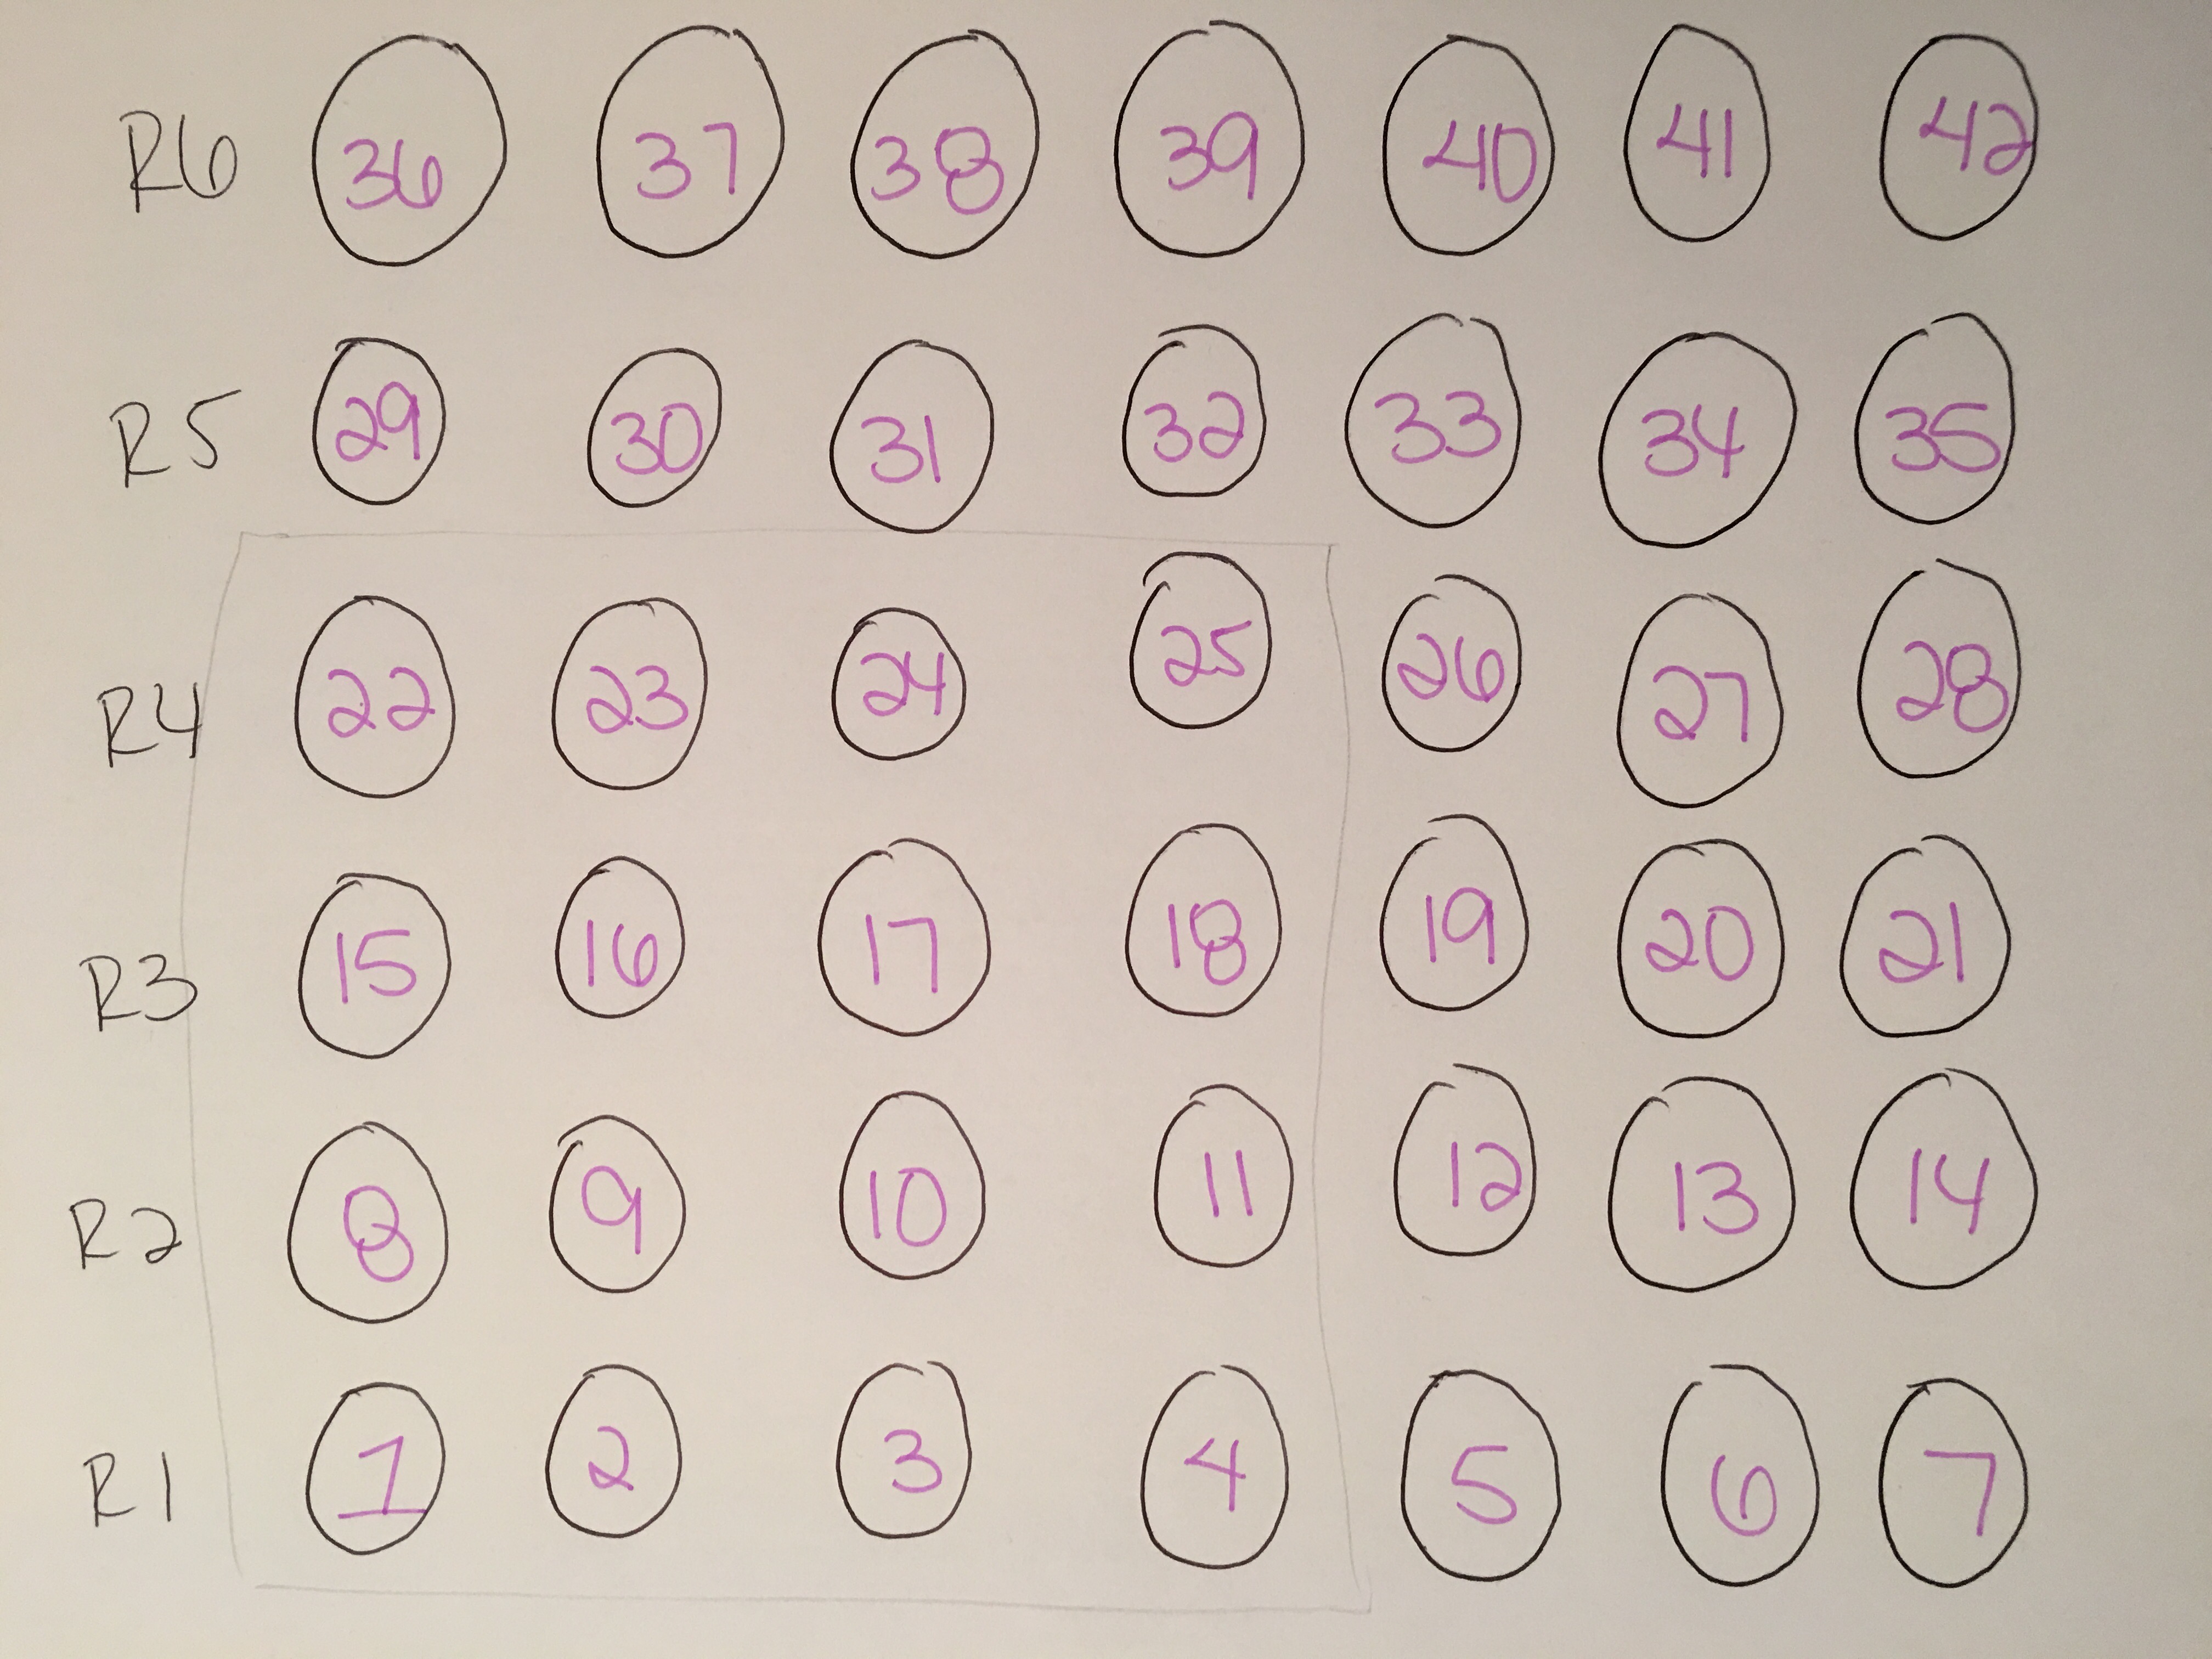 R6 36 37 38 39 40 41 42
R5 29 30 31 32 33 34 35
R4 22 23 24 25 26 27 28
R3 15 16 17 18 19 20 21
R2 8 9 10 11 12 13 14
R1 1 2 3 4 5 6 7